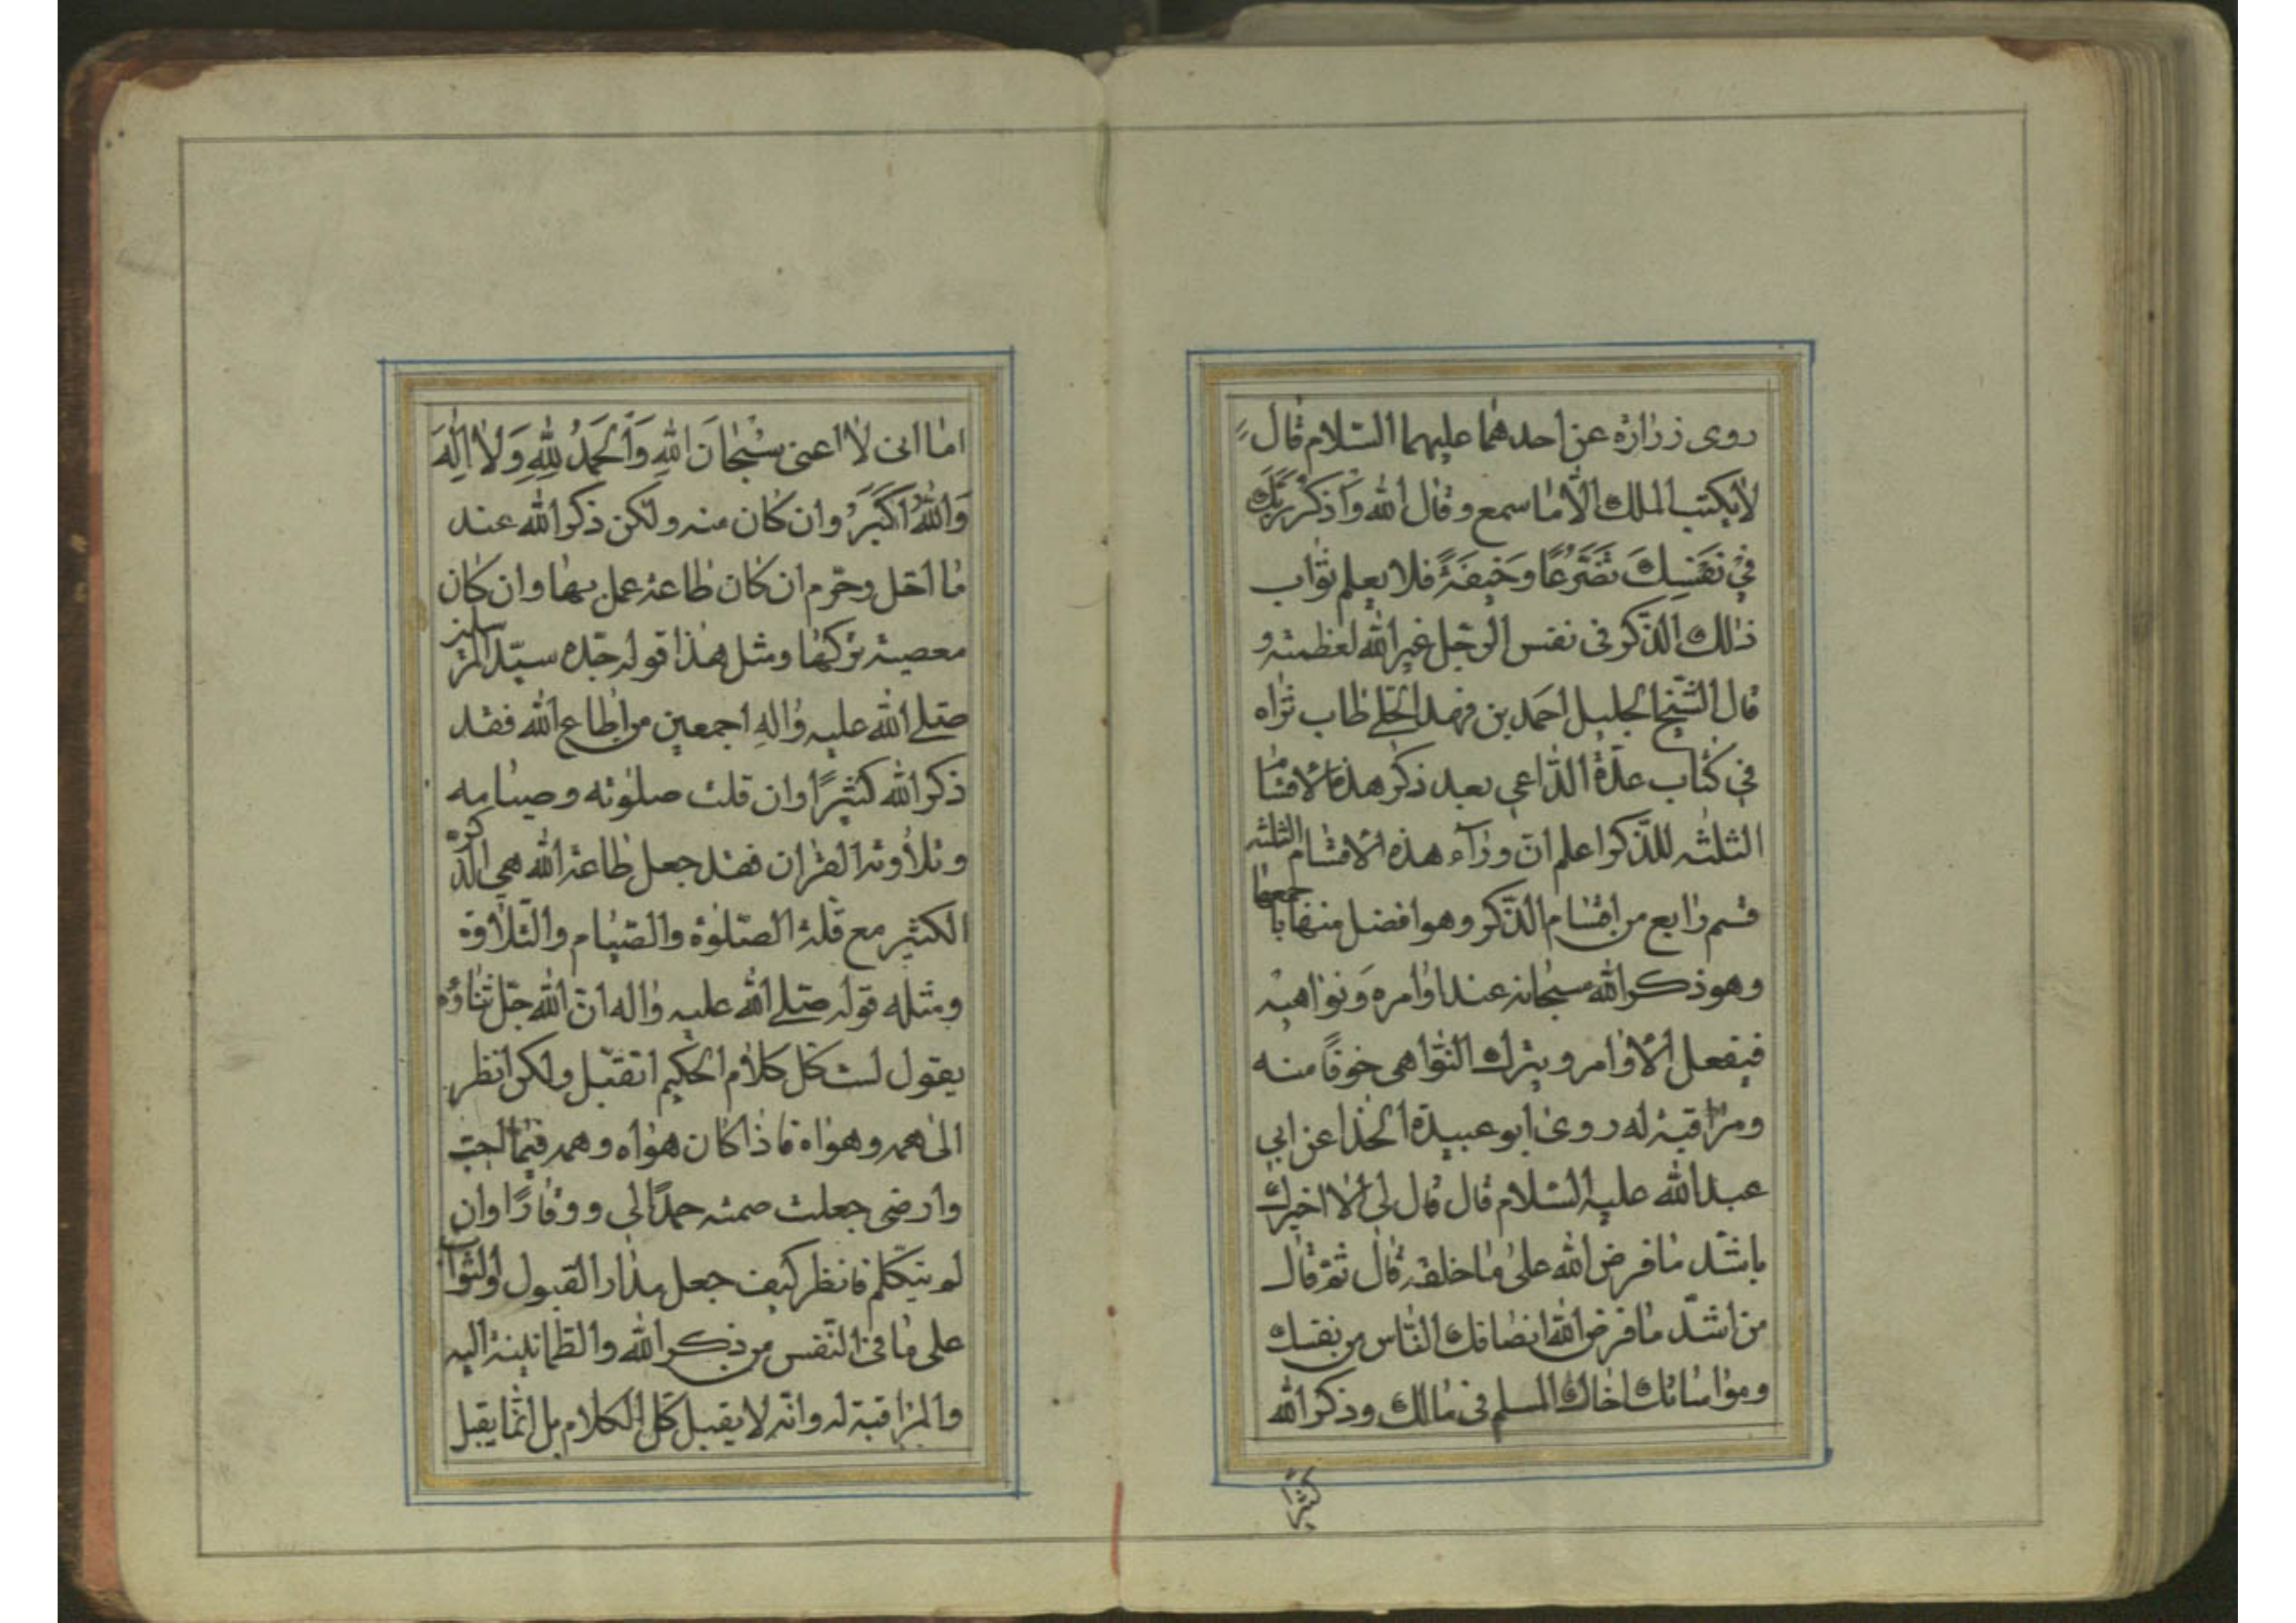 روى زرارة عن احدهما عليهما السلام قال
لا يكتب الملك الّا ما سمع وقال الله وَاذْكُرْ رَبَّكَ
فِي نَفْسِكَ تَضَرُّعًا وَخِيفَةً فلا يعلم ثواب
ذلك الذّكر فى نفس الرجل غير الله لعظمته و
قال الشّيخ الجليل احمد بن فهد الحلّي طاب ثراه
في كتاب عدّة الدّاعي بعد ذكر هذه الاقسام
الثلثه للذّكر اعلم انّ ورآء هذه الاقسام الثلثه
قسم رابع من اقسام الذّكر وهو افضل منها باجمعها
وهو ذكر الله سبحانه عند اوامره ونواهيه
فيفعل الاوامر ويترك النّواهى خوفًا منه
ومراقبة له روى ابو عبيدة الحذا عن ابي
عبد الله عليه السّلام قال قال لى الا اخبرك
باشّد ما فرض الله على ما خلقه قال ثم قال
من اشدّ ما فرض الله انصافك النّاس من نفسك
ومواساتك اخاك المسلم فى مالك وذكر الله
كثيرًا
اما انى لا اعنى سُبْحَانَ اللهِ وَالْحَمْدُ لِلّهِ وَلا اِلهَ
وَاللهُ اَكْبَرُ وان كان منه ولكن ذكر الله عند
ما احّل وحرّم ان كان طاعة عمل بها وان كان
معصية تركها ومثل هذا قوله جدّه سيّد المرسلين
صلى الله عليه واله اجمعين من اطاع الله فقد
ذكر الله كثيرًا وان قلت صلوته وصيامه
وتلاوته القران فقد جعل طاعة الله هي الذّكره
الكثير مع قلّة الصّلوة والصّيام والتّلاوة
ومثله قوله صلى الله عليه واله انّ الله جلّ ثناؤه
يقول لست كلّ كلام الحكيم اتقبّل ولكن انظر
الى همه وهواه فاذا كان هواه وهمه فيما احبّ
وارضى جعلت صمته حمدًا لي ووقارًا وان
لم يتكلم فانظر كيف جعل مدار القبول والثواب
على ما فى النّفس من ذكر الله والطمانينة اليه
والمراقبة له وانّه لا يقبل كلّ الكلام بل انّما يقبل